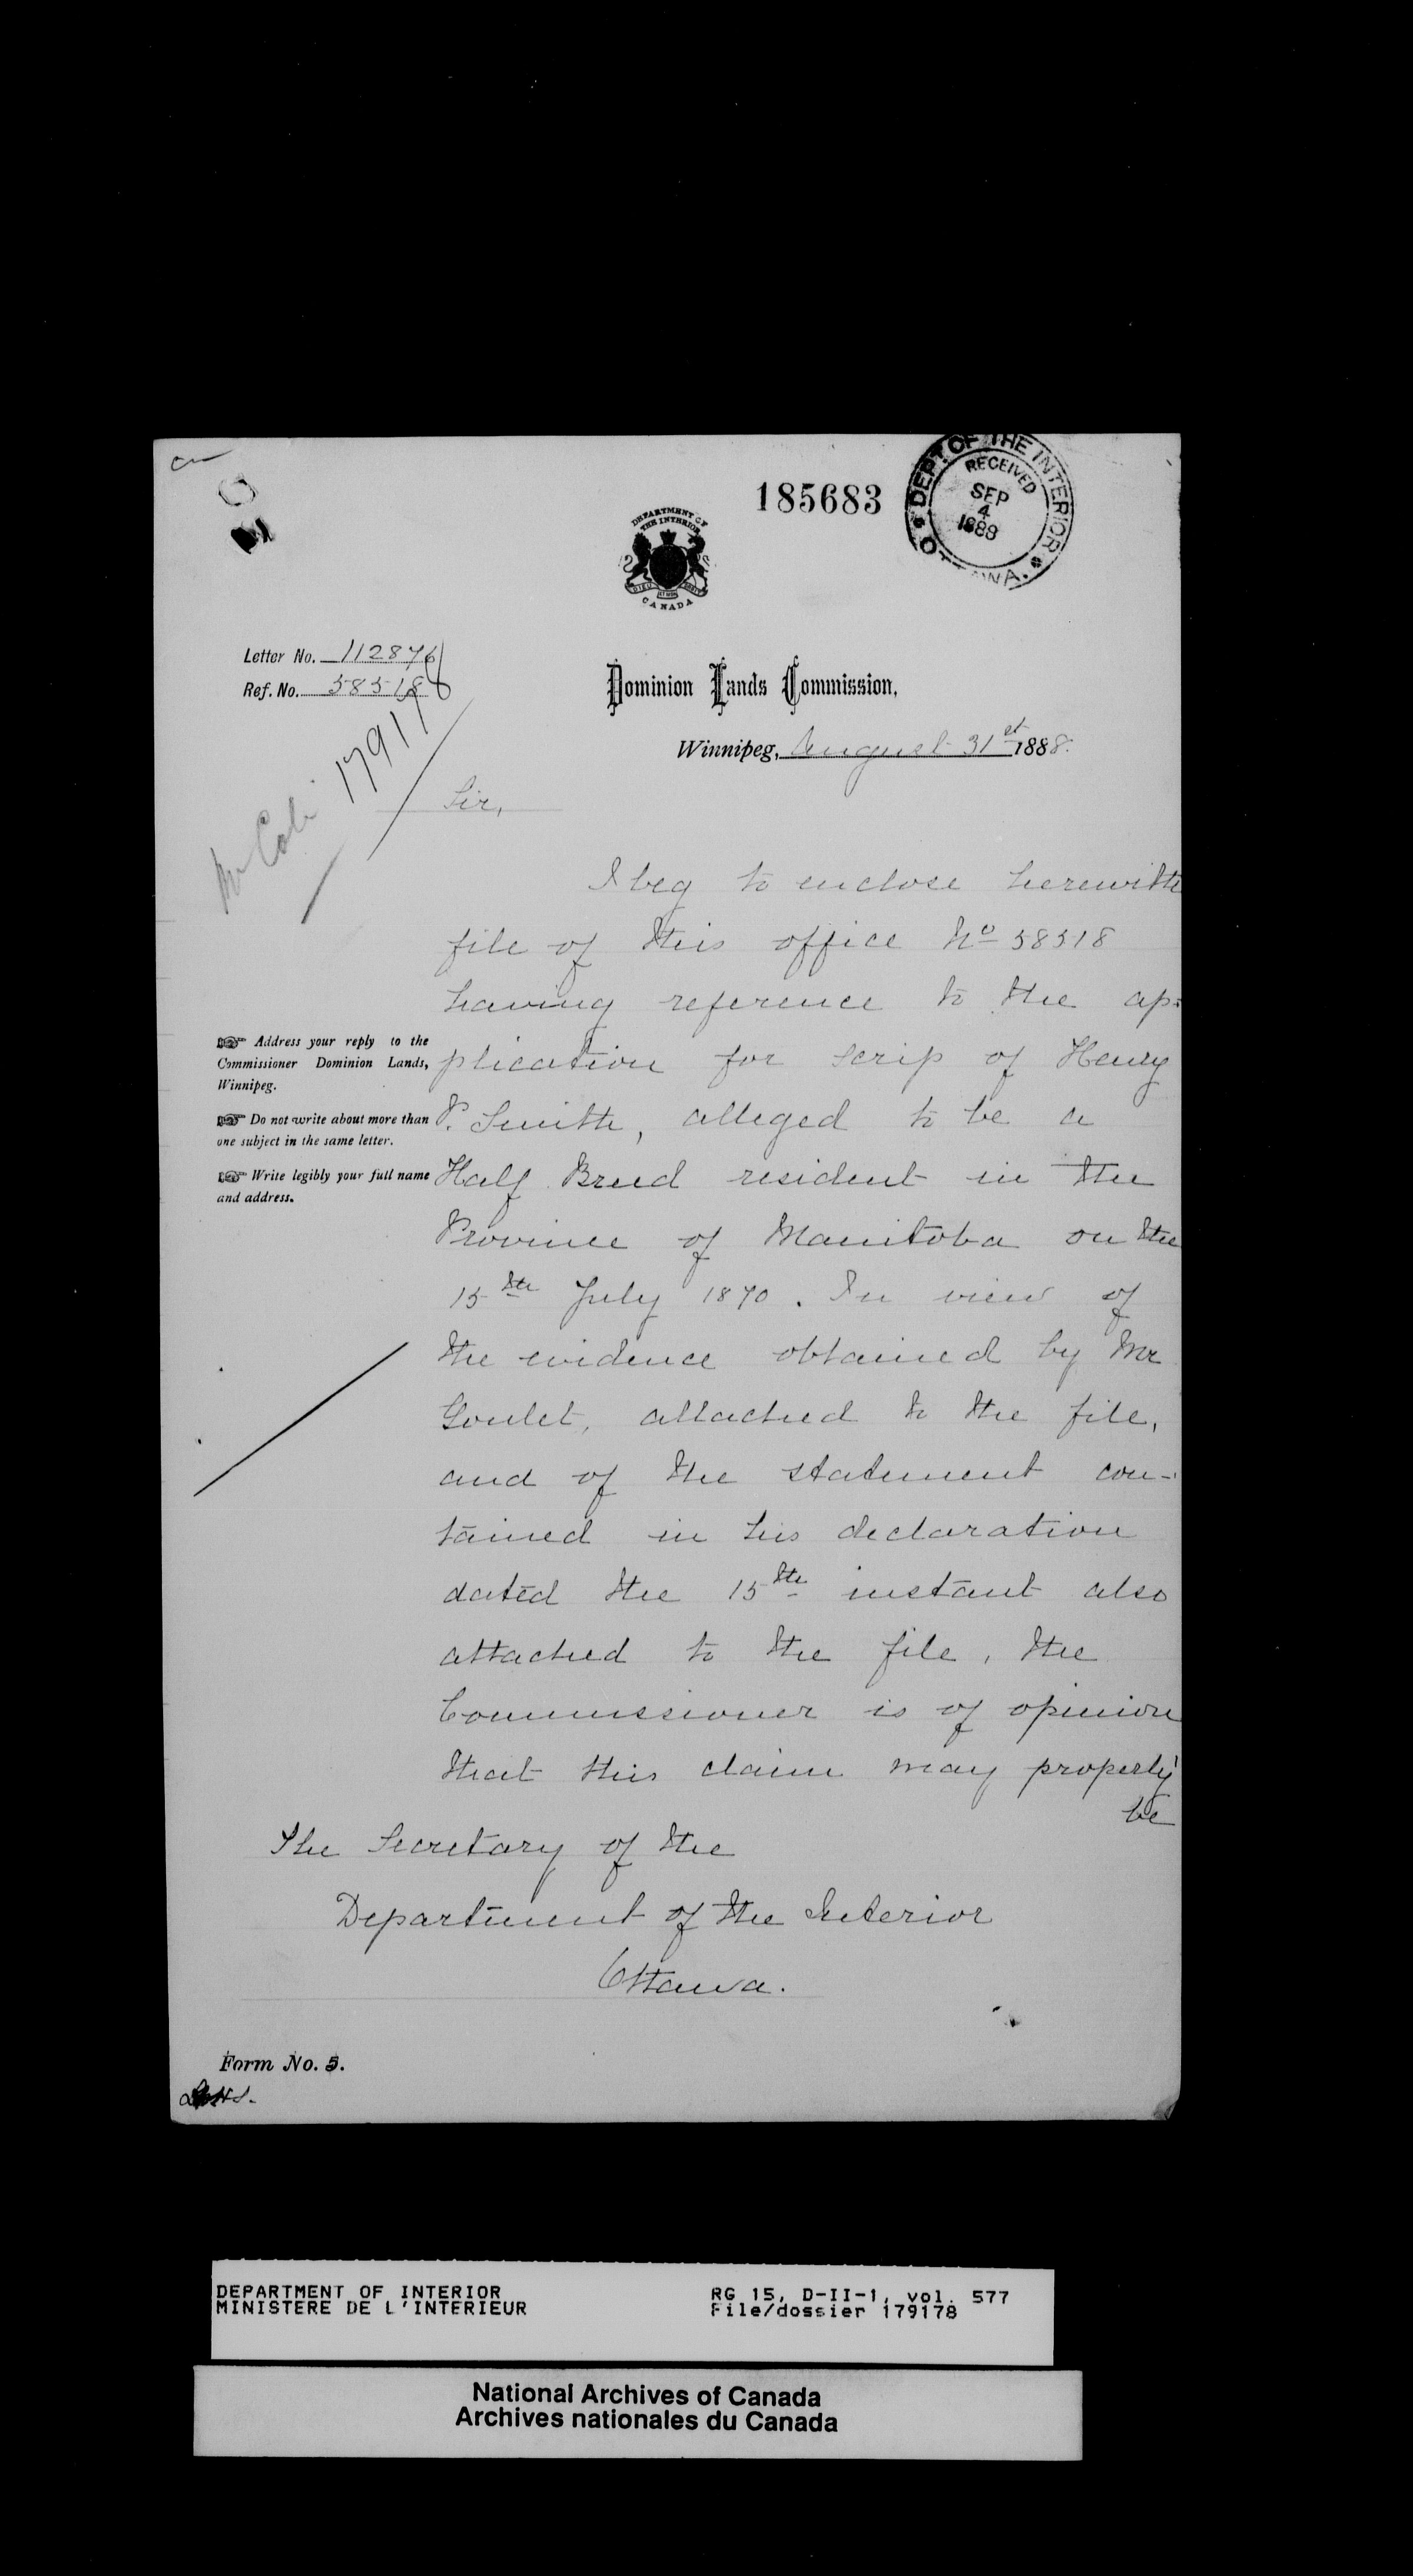 185683
DEPT. OF THE INTERIOR
RECEIVED
SEP
4
1888
OTTAWA.
DEPARTMENT OF
THE INTERIOR
CANADA
Letter No. 112876
Ref. No. 58518
179178
Dominion Lands Commission,
Winnipeg, August 31st 1888.
Sir,
I beg to enclose herewith
file of this office No 58518
having reference to the ap-
plication for scrip of Henry
P. Smith, alleged to be a
Half Breed resident in the
Province of Manitoba on the
15th July 1870. In view of
the evidence obtained by Mr
Goulet, attached to the file,
and of the statement con-
tained in his declaration
dated the 15th instant also
attached to the file, the
Commissioner is of opinion
that this claim may properly
be
Address your reply to the
Commissioner Dominion Lands,
Winnipeg.
Do not write about more than
one subject in the same letter.
Write legibly your full name
and address.
The Secretary of the
Department of the Interior
Ottawa.
Form No. 5.
DEPARTMENT OF INTERIOR
MINISTERE DE L'INTERIEUR
RG 15, D-II-1, vol. 577
File/dossier 179178
National Archives of Canada
Archives nationales du Canada